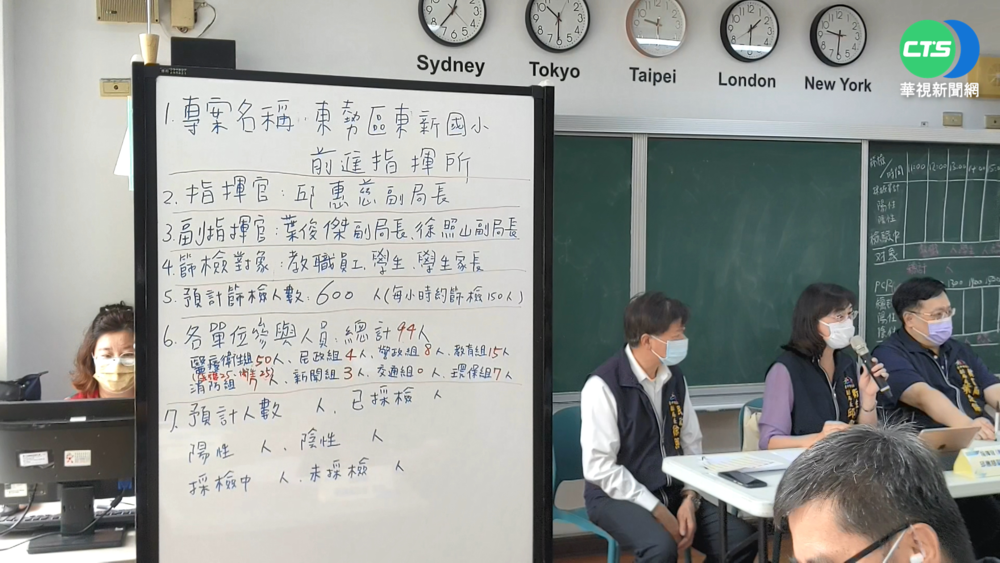 CTS
華視新聞網
Sydney
Tokyo
Taipei
London
New York
1.專案名稱:東勢區東新國小
前進指揮所
2.指揮官:邱惠慈副局長
3.副指揮官:葉俊傑副局長、徐照山副局長
4.篩檢對象:教職員工、學生、學生家長
5.預計篩檢人數:600 人(每小時約篩檢150人)
6.各單位參與人員:總計94人
醫療衛生組50人、民政組4人、警政組8人、教育組15人
消防組7人、新聞組3人、交通組0人、環保組7人
7.預計人數 人、已採檢 人
陽性 人、陰性 人
採檢中 人、未採檢 人
時間
11:00
12:00
13:00
14:00
陽性
陰性
對象
PCR